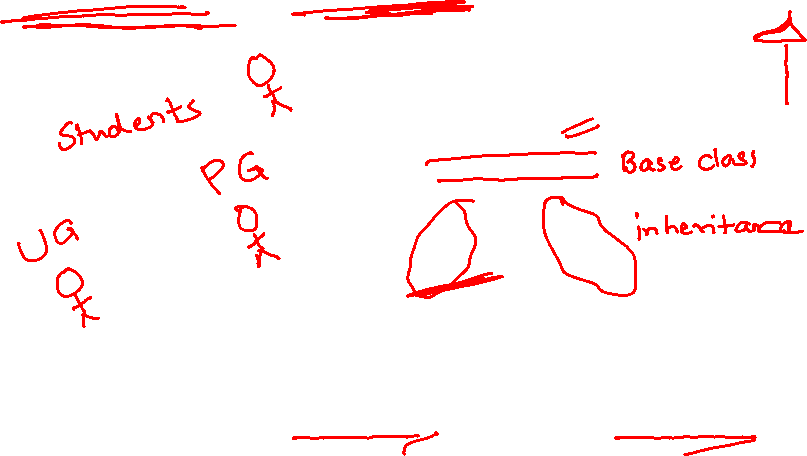 Students
PG
UG
Base class
inheritance